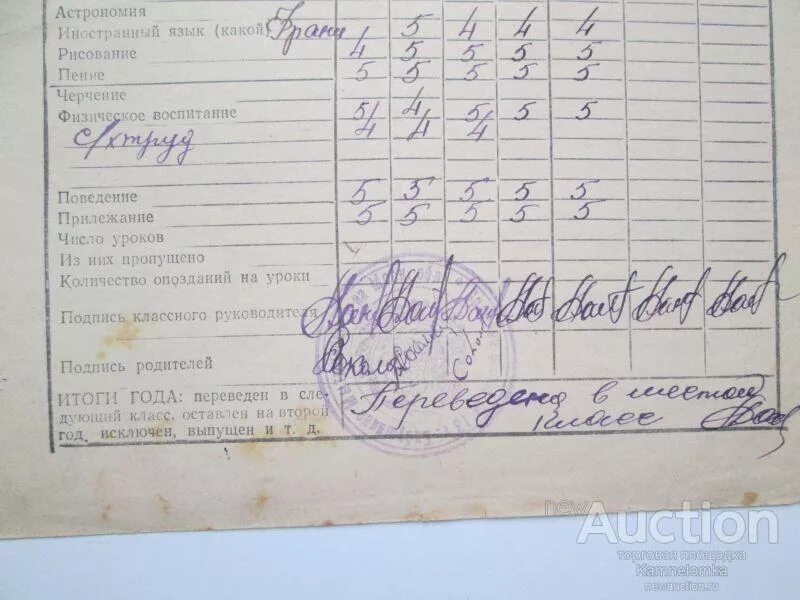 Астрономия
Иностранный язык (какой) Франц 5 4 4 4
Рисование 4 5 5 5 5
Пение 5 5 5 5 5
Черчение
Физическое воспитание 5 4 5 5 5
с/х труд 4 4 4
Поведение 5 5 5 5 5
Прилежание 5 5 5 5 5
Число уроков
Из них пропущено
Количество опозданий на уроки
Подпись классного руководителя
Подпись родителей
ИТОГИ ГОДА: переведен в сле-
дующий класс, оставлен на второй
год, исключен, выпущен и т. д.
Переведена в шестой
класс
newAuction
торговая площадка
Kamnelomka
newauction.ru